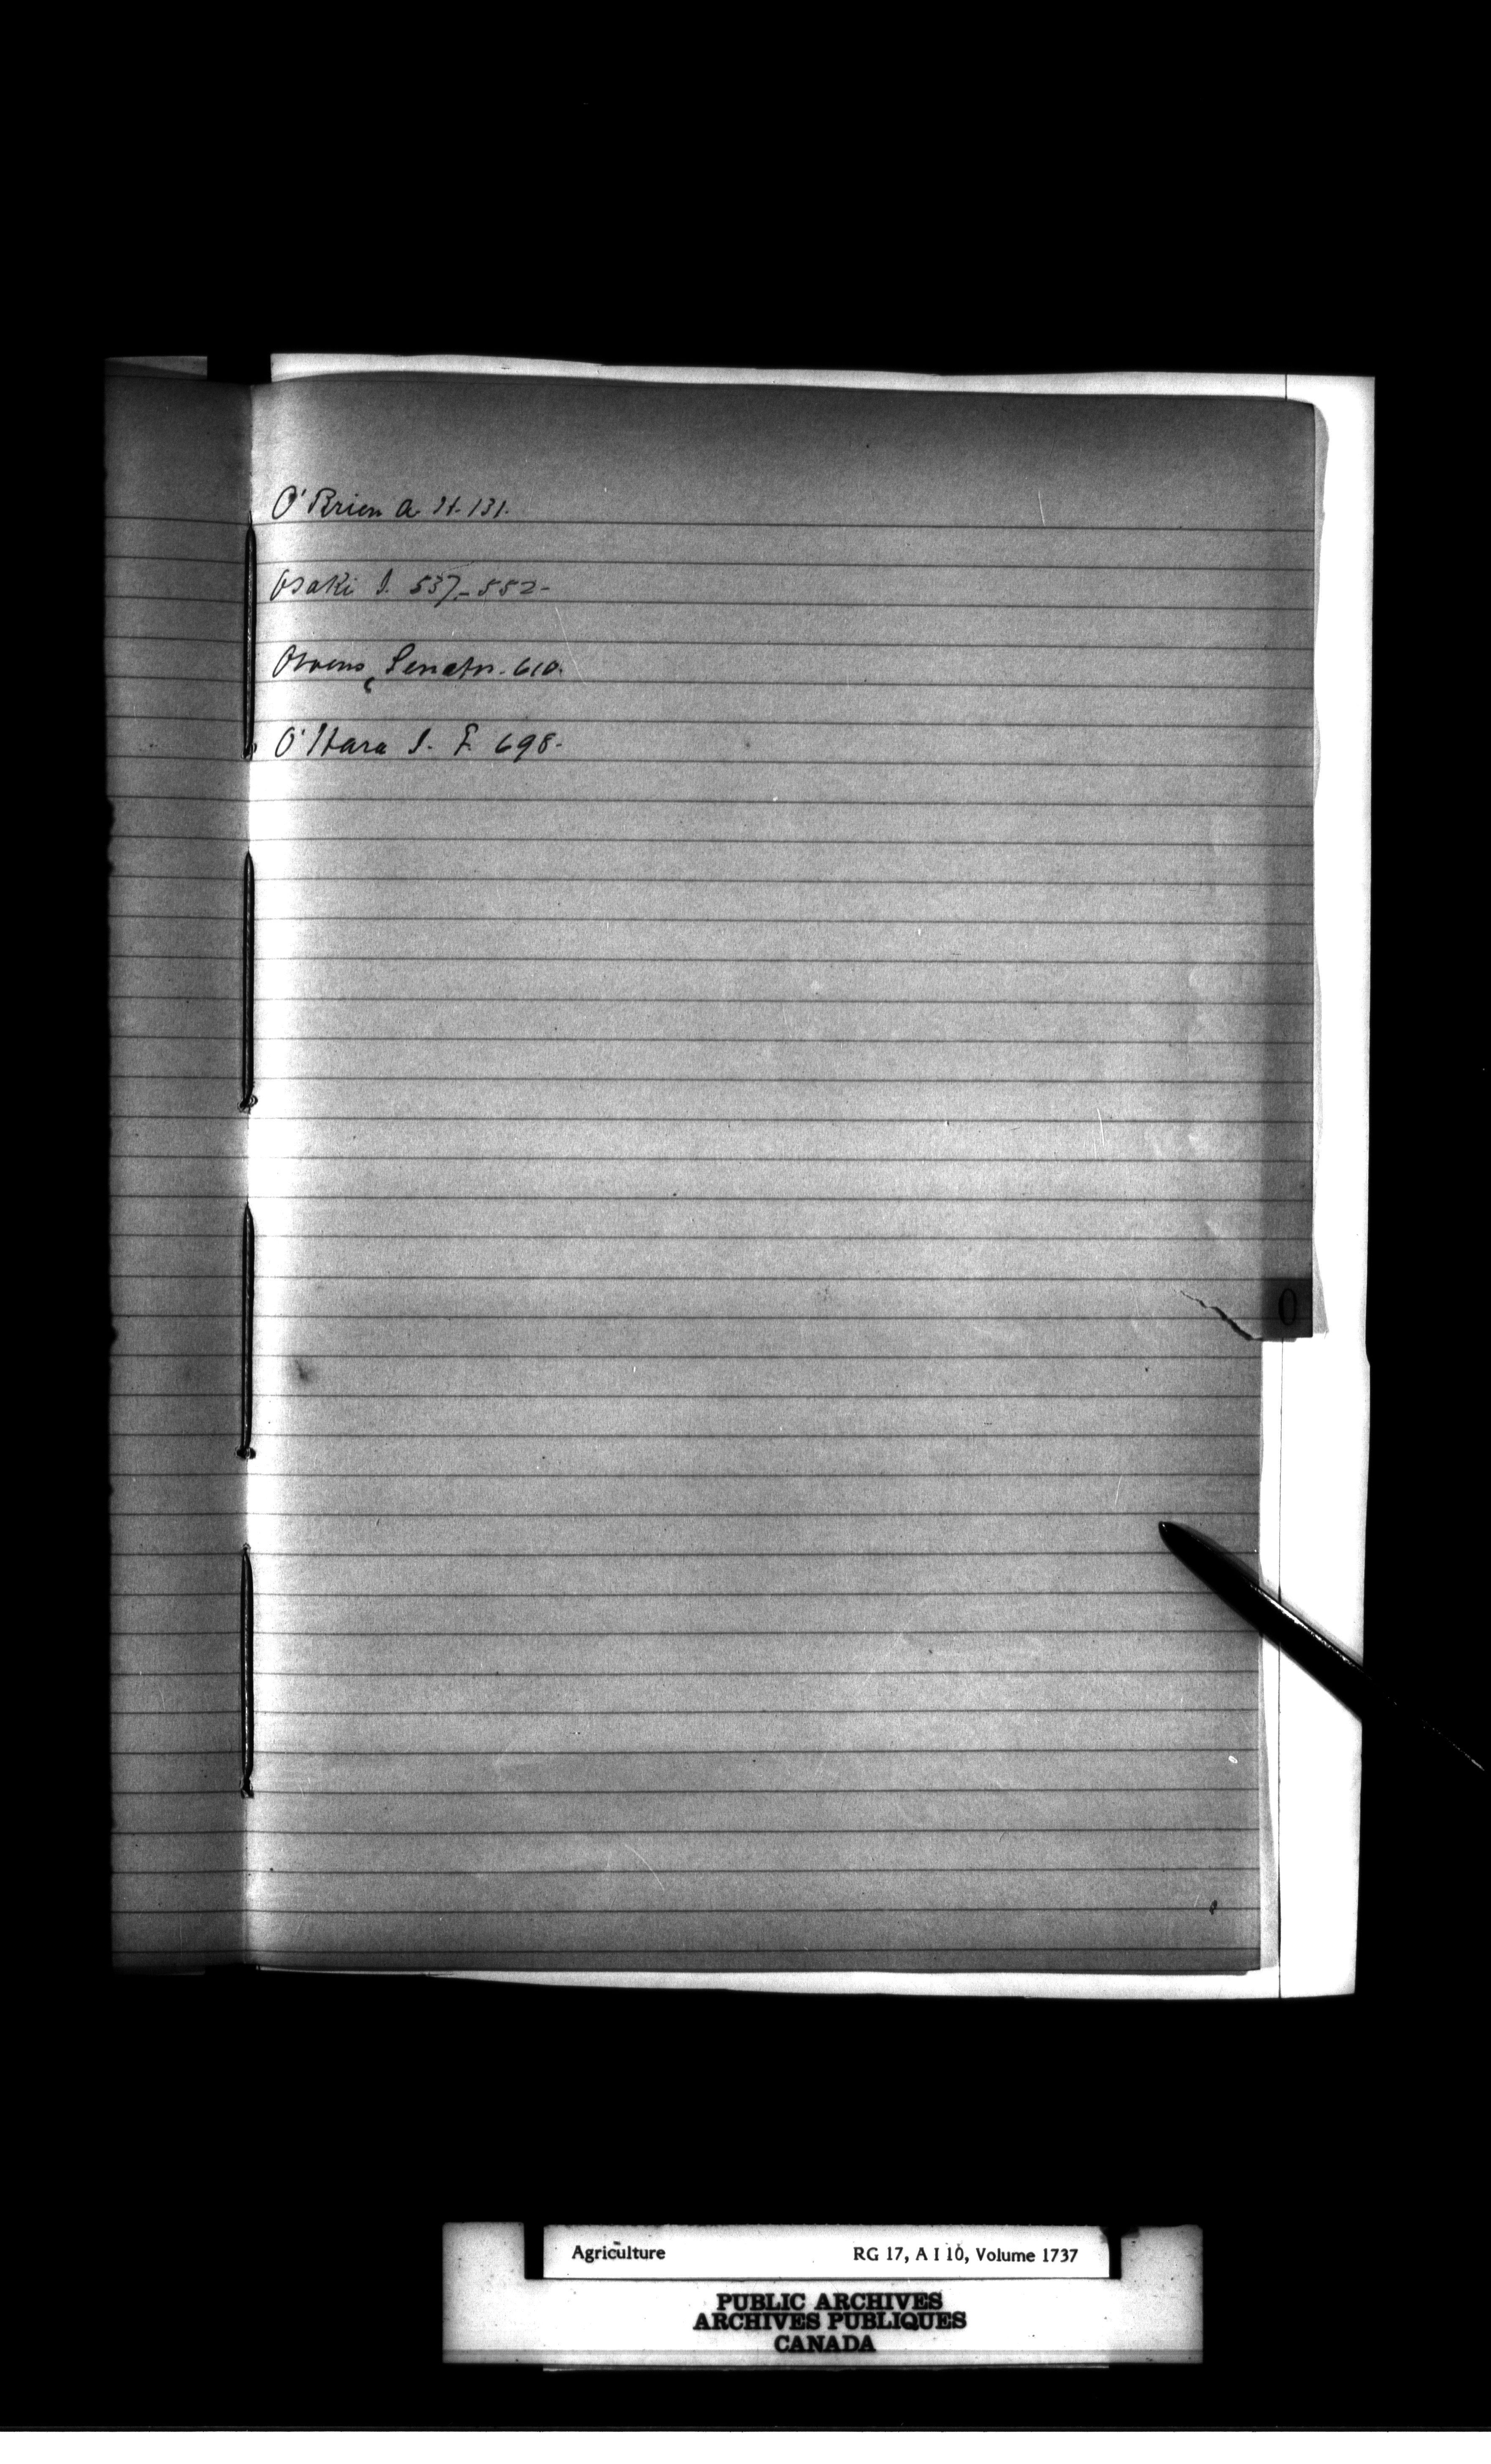 O'Brien A. H. 131.
Osaki I. 537-552-
Owens, Senator. 610.
O'Hara I. F. 698.
O
Agriculture RG 17, A I 10, Volume 1737
PUBLIC ARCHIVES
ARCHIVES PUBLIQUES
CANADA